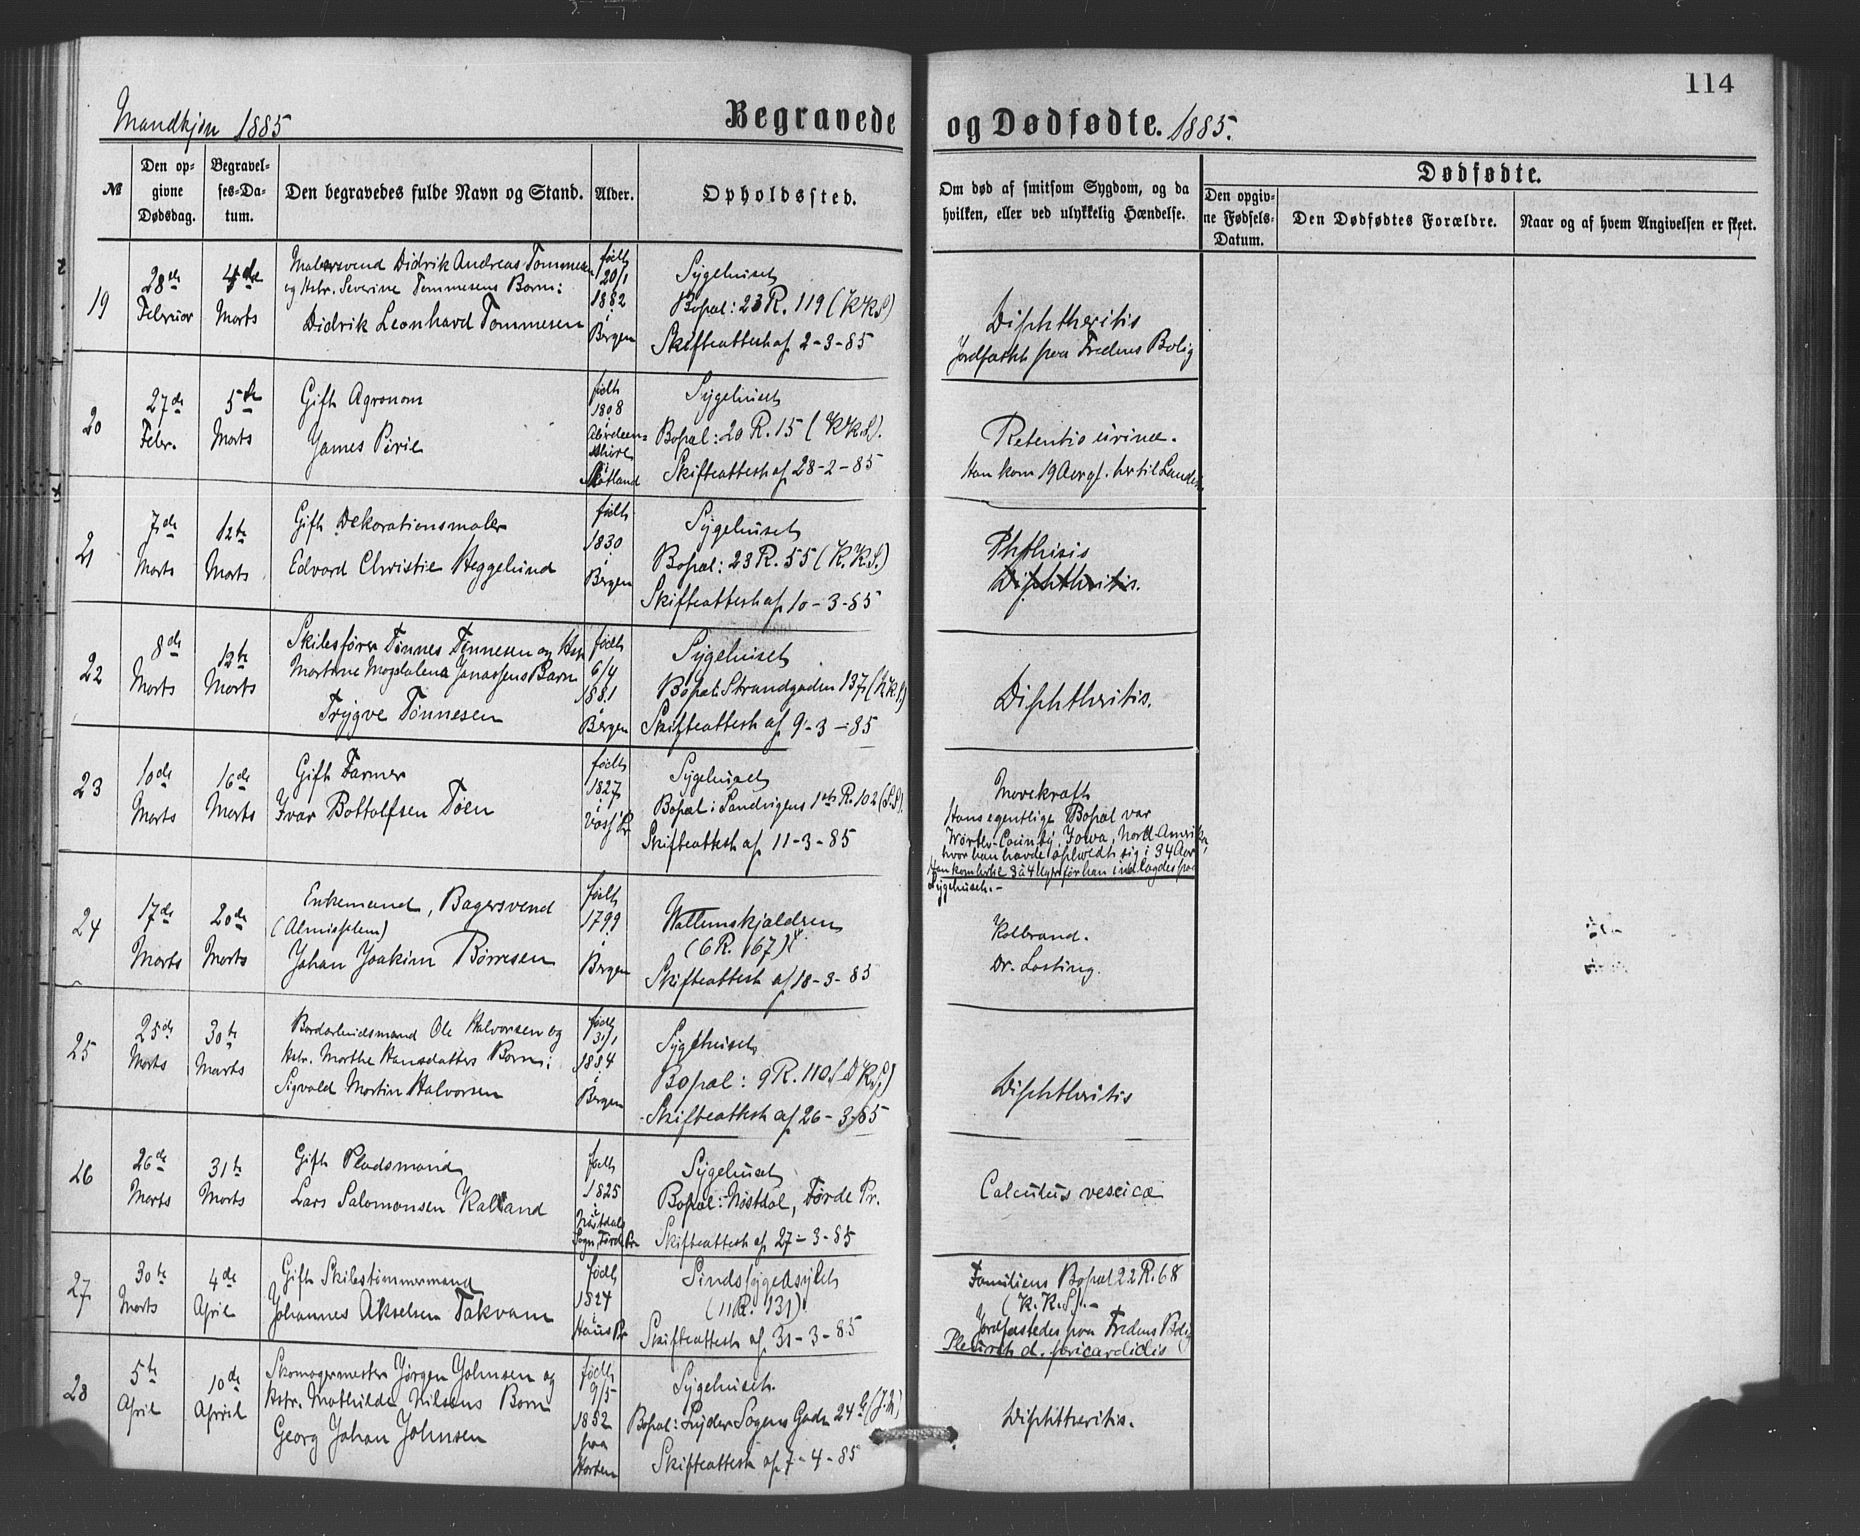 114
Mandkjøn 1885
Begravede og Dødfødte. 1885.
№
Den opgivne Dødsdag.
Begravelses-Datum.
Den begravedes fulde Navn og Stand.
Alder.
Opholdssted.
Om død af smitsom Sygdom, og da hvilken, eller ved ulykkelig Hændelse.
Dødfødte.
Den opgivne Fødsels-Datum.
Den Dødfødtes Forældre.
Naar og af hvem Angivelsen er skeet.
19
28de Februar
4de Marts
Malersvend Didrik Andreas Tommesen
og Hstr. Severine Tommesens Barn:
Didrik Leonhard Tommesen
født 20/1 1882 i Bergen
Sygehuset
Bopæl: 23 R. 119 (KKS)
Skifteattest af 2-3-85
Diphtheritis
Jordfæstet paa Fredens Bolig
20
27de Febr.
5te Marts
Gift Agronom
James Pirie
født 1808 i Aberdeenshire i Skotland
Sygehuset
Bopæl: 20 R. 15 (KKS).
Skifteattest af 28-2-85
Retentio urinæ.
Han kom 19 Aar gl. her til Landet
21
7de Marts
12te Marts
Gift Dekorationsmaler
Edvard Christie Heggelund
født 1830 i Bergen
Sygehuset
Bopæl: 23 R. 55 (K.K.S.)
Skifteattest af 10-3-85
Phthisis
Diphtheritis.
22
8de Marts
12te Marts
Skibsfører Tønnes Tønnesen og Hstr
Martine Magdalena Janassens Barn
Trygve Tønnesen
født 6/4 1881 i Bergen
Sygehuset
Bopæl: Strandgaden 137 (KKS)
Skifteattest af 9-3-85
Diphtheritis.
23
10de Marts
16de Marts
Gift Farmer
Ivar Bottolfsen Tøen
født 1827 i Voss Pr
Sygehuset
Bopæl: Sandvigens 1ste R. 102 (S.S).
Skifteattest af 11-3-85
Mavekræft
Hans egentlige Bopæl var
Worth-County, Iowa, Nord-Amerika,
hvor han havde opholdt sig i 34 Aar
Han kom hertil 3 à 4 Uger før han indlagdes paa
Sygehuset.-
24
17de Marts
20de Marts
Enkemand, Bagersvend
(Almisselem)
Johan Joakim Børresen
født 1799 i Bergen
Wallemskjoldsen
(6 R. 167)
Skifteattest af 18-3-85
Kolbrand.
Dr. Losting.
25
25de Marts
30te Marts
Bordarbeidsmand Ole Halvorsen og
Hstr. Marthe Hansdatters Barn:
Sigvald Martin Halvorsen
født 31/1 1884 i Bergen
Sygehuset
Bopæl: 9 R. 110 (D.K.S.)
Skifteattest af 26-3-85
Diphtheritis
26
26de Marts
31te Marts
Gift Pladsmand
Lars Salomonsen Kalland
født 1825 i Nøstdals Sogn, Førde Pr
Sygehuset
Bopæl: Nøstdal, Førde Pr.
Skifteattest af 27-3-85
Calculus vescicæ
27
30te Marts
4de April
Gift Skibstømmermand
Johannes Akselsen Takvam
født 1824 i Haus Pr
Sindssygeasylet
(11 R. 131)
Skifteattest af 31-3-85
Familiens Bopæl 22 R. 68
(K.K.S).-
Jordfæstedes paa Fredens Bolig
28
5te April
10de April
Skomagermester Jørgen Johnsen og
Hstr. Mathilde Nilsens Barn
Georg Johan Johnsen
født 9/5 1882 paa Horten
Sygehuset.
Bopæl: Lyder Sagens Gade 24 (J.M)
Skifteattest af 7-4-85
Diphtheritis.